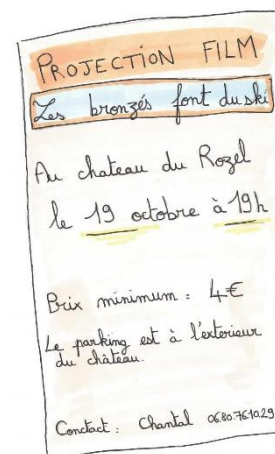 PROJECTION FILM
Les bronzés font du ski
Au chateau du Rozel
le 19 octobre à 19h
Prix minimum : 4€
Le parking est à l'exterieur
du château.
Conctact : Chantal 06.80.76.10.29